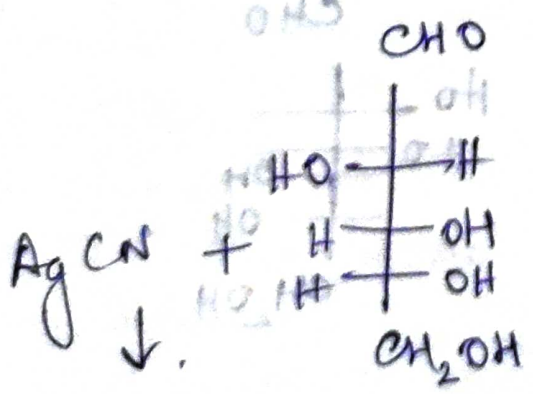 CHO
HO H
AgCN + H OH
↓. H OH
CH₂OH